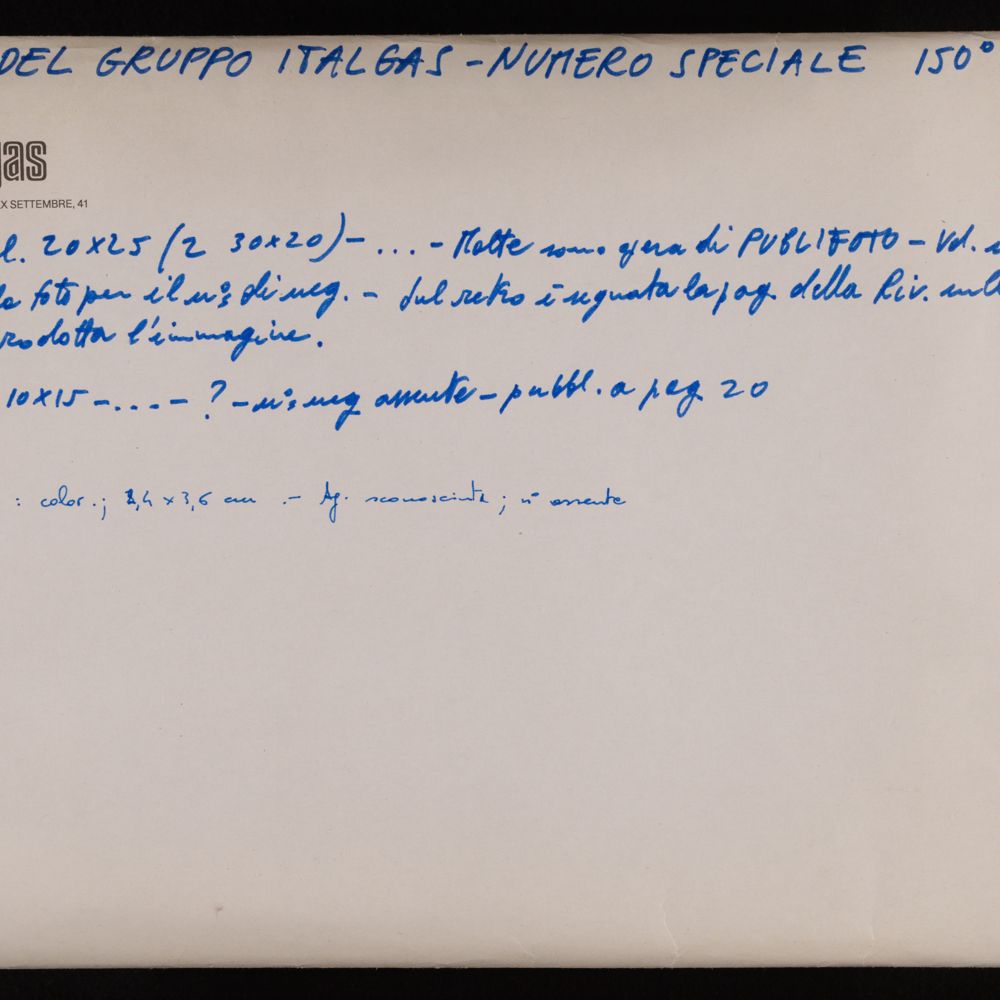 DEL GRUPPO ITALGAS - NUMERO SPECIALE 150°
gas
X SETTEMBRE, 41
l. 20x25 (2 30x20) - ... - Molte sono opera di PUBLIFOTO - Vd.
foto per il n° di neg. - Sul retro è segnata la pag. della Riv. sulla
rodotta l'immagine.
10x15 - ... - ? - n° neg assente - pubbl. a pag 20
: color.; 2,4 x 3,6 cm . - Ag. sconosciuta ; n° assente